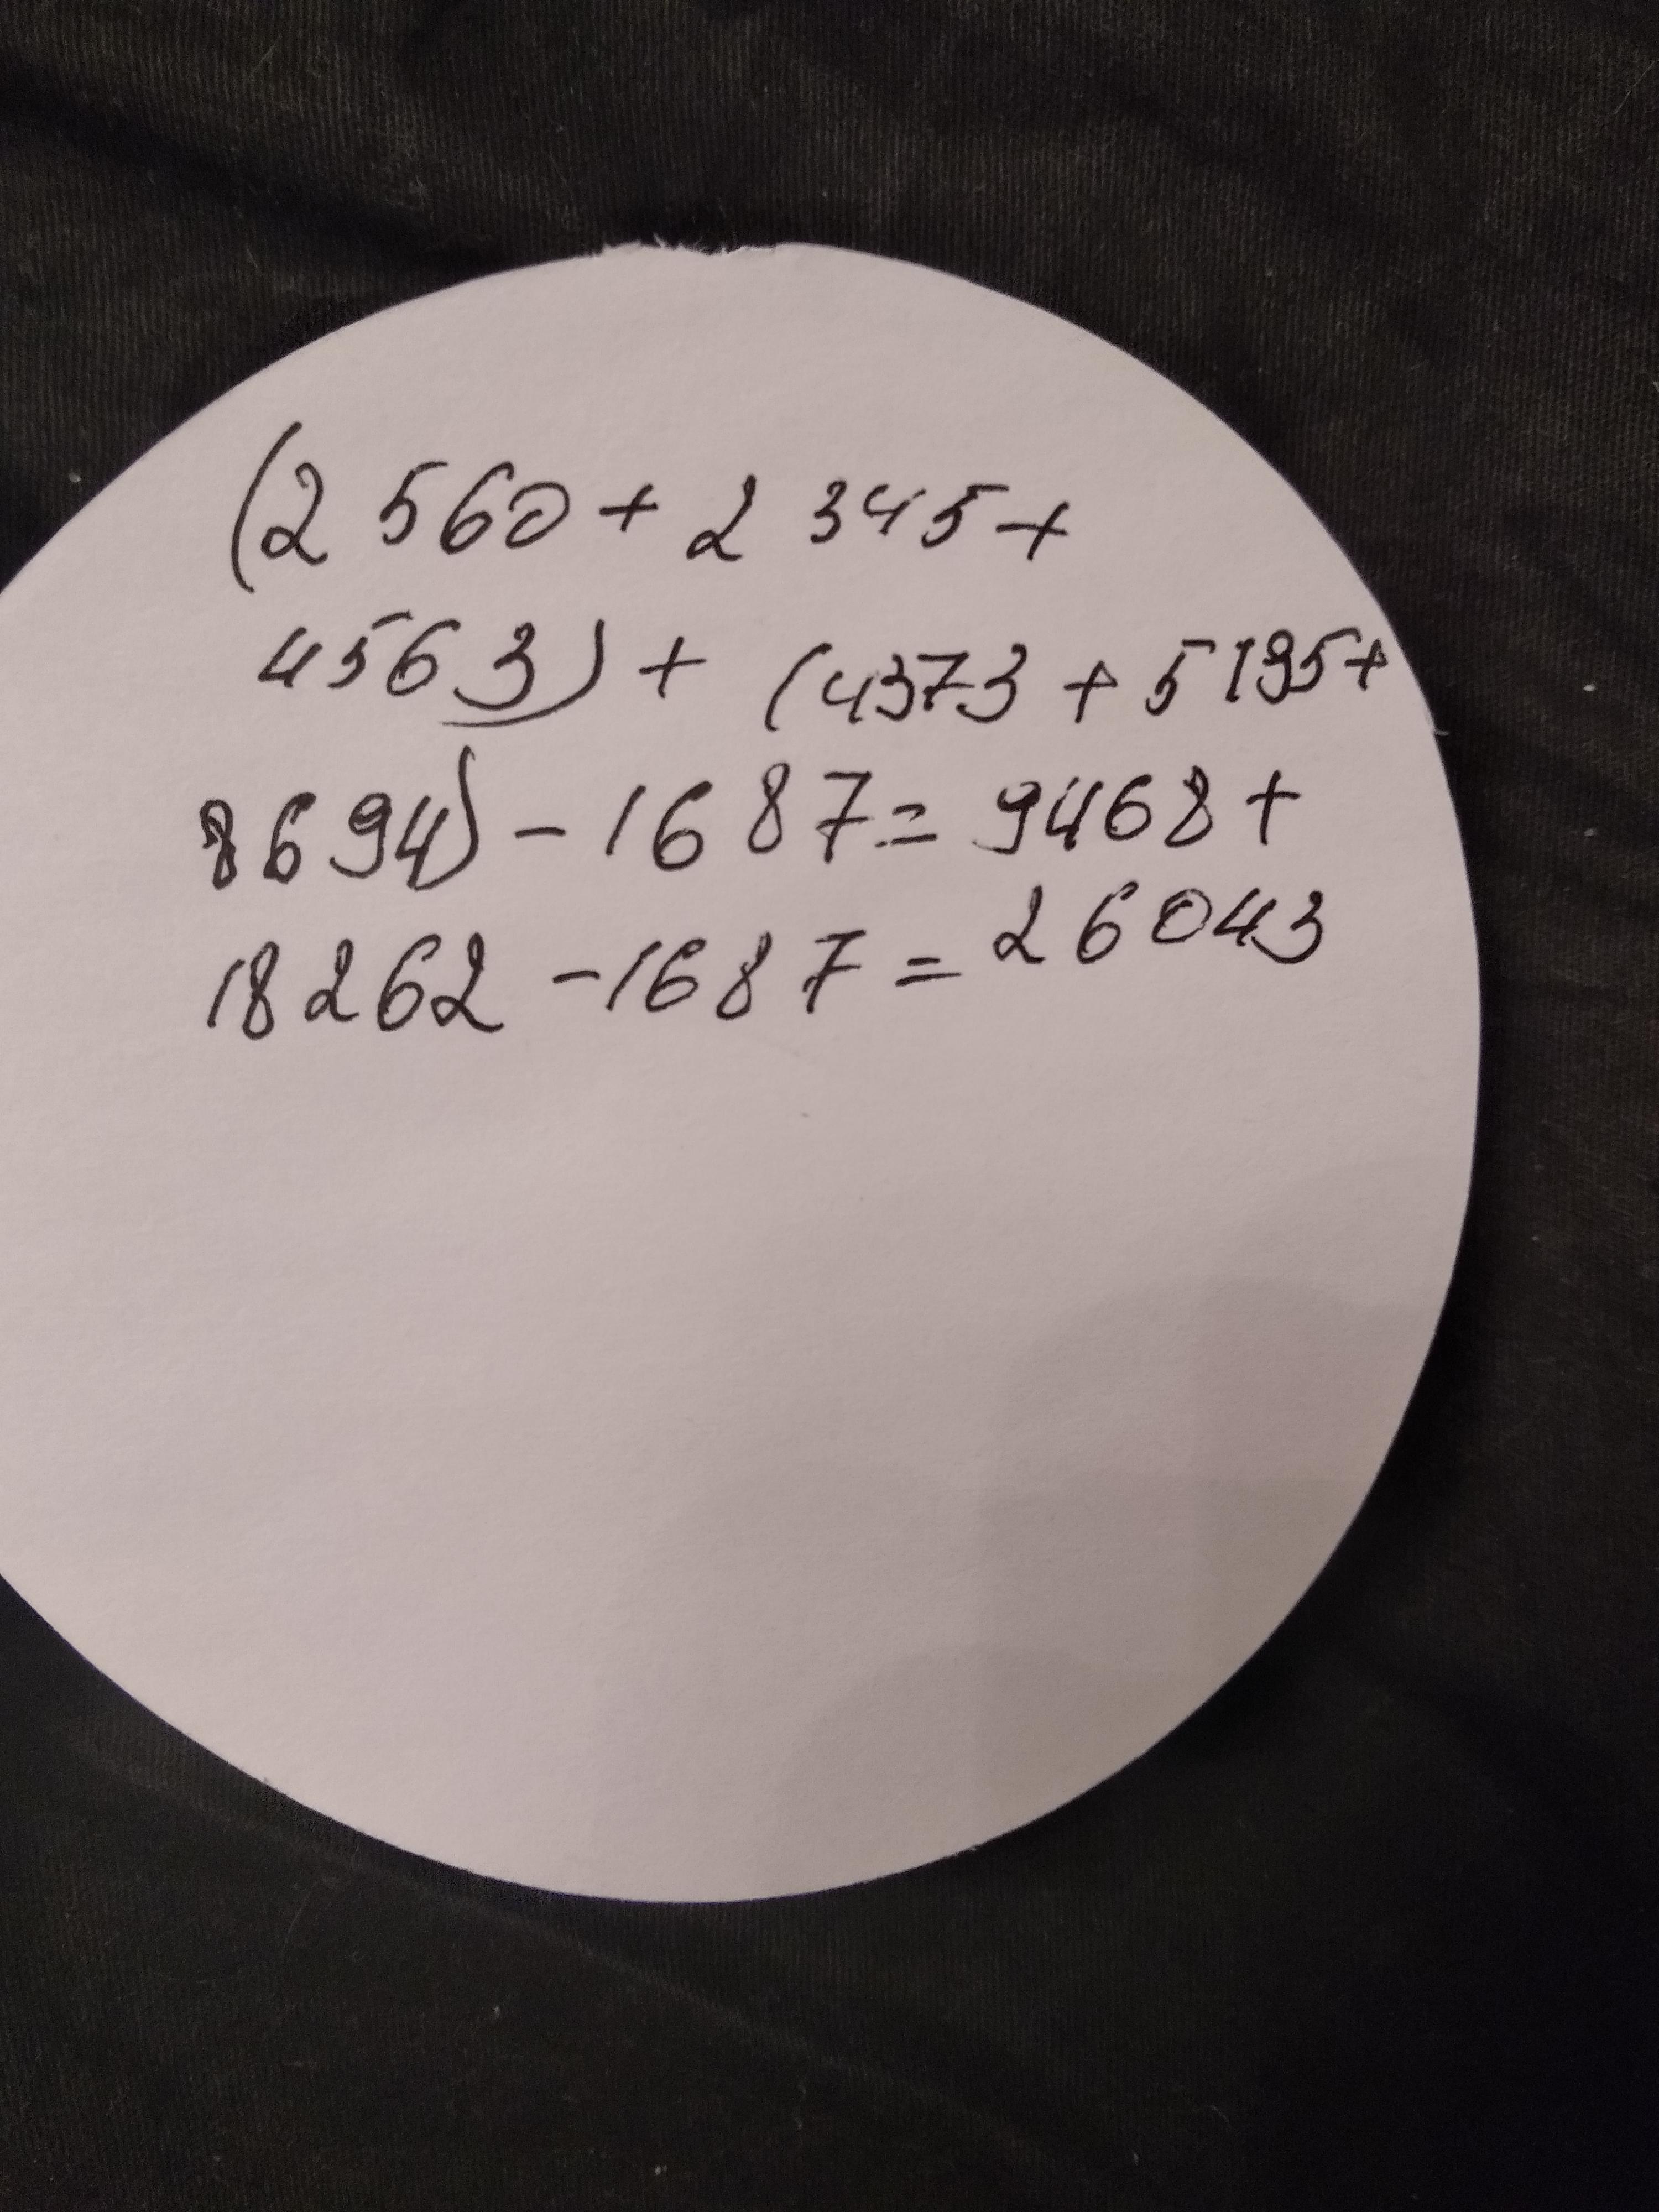 (2 560 + 2 345 +
4563) + (4373 + 5195 +
8694) - 1687 = 9468 +
18262 - 1687 = 26043